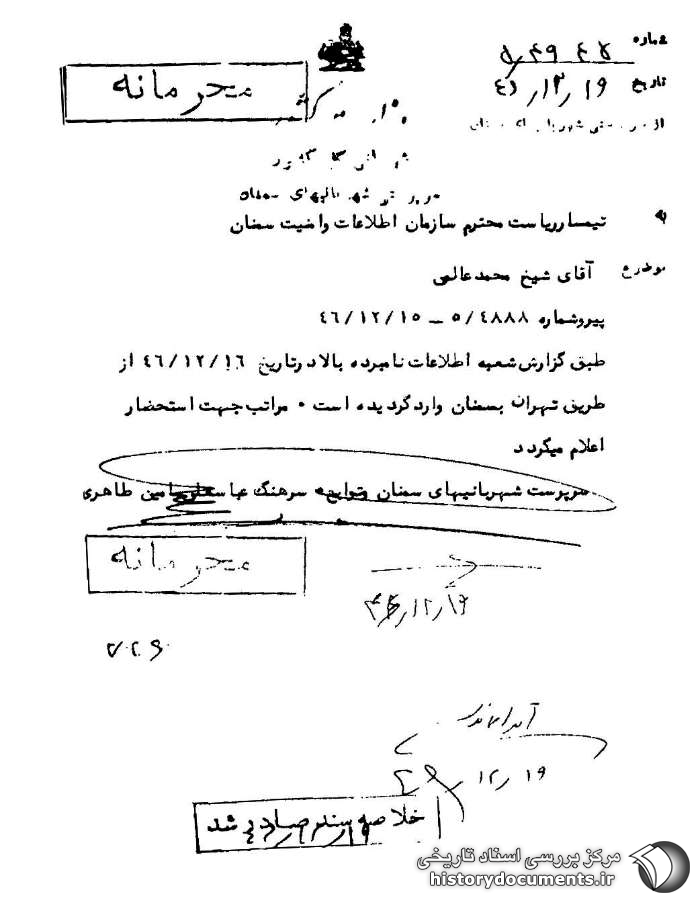 شماره
تاریخ ۴۶/۱۲/۱۹
محرمانه
شهربانی کل کشور
به تیمسار ریاست محترم سازمان اطلاعات وامنیت سمنان
موضوع آقای شیخ محمدعالمی
پیروشماره ۵/٤۸۸۸ – ٤٦/۱۲/۱۵
طبق گزارش شعبه اطلاعات نامبرده بالادرتاریخ ٤٦/۱۲/۱٦ از
طریق تهران بسمنان واردگردیده است ۰ مراتب جهت استحضار
اعلام میگردد
سرپرست شهربانیهای سمنان وتوابع سرهنگ طاهری
محرمانه
۱۲/۱۹
۱۲/۱۹
خلاصه سند صادر شد
مرکز بررسی اسناد تاریخی
historydocuments.ir